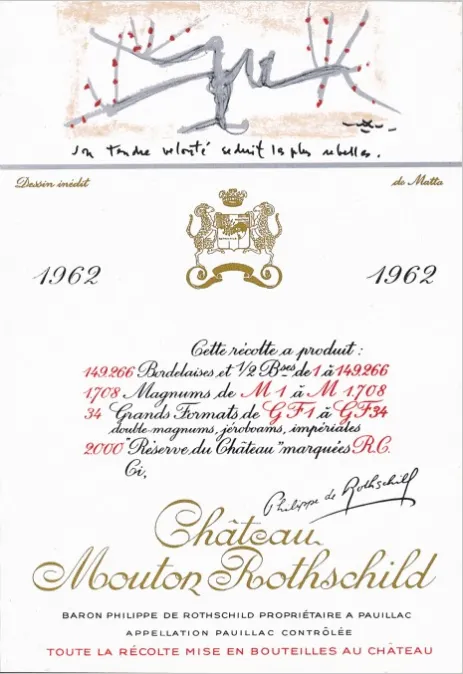 Son tendre velouté séduit les plus rebelles.
Dessin inédit de Matta
1962 1962
Cette récolte a produit :
149.266 Bordelaises et 1/2 Bses de 1 à 149.266
1708 Magnums de M 1 à M 1.708
34 Grands Formats de GF1 à GF34
double magnums, jéroboams, impériales
2000 "Réserve du Château" marquées R.C.
Ci,
Philippe de Rothschild
Château
Mouton Rothschild
BARON PHILIPPE DE ROTHSCHILD PROPRIÉTAIRE A PAUILLAC
APPELLATION PAUILLAC CONTRÔLÉE
TOUTE LA RÉCOLTE MISE EN BOUTEILLES AU CHÂTEAU